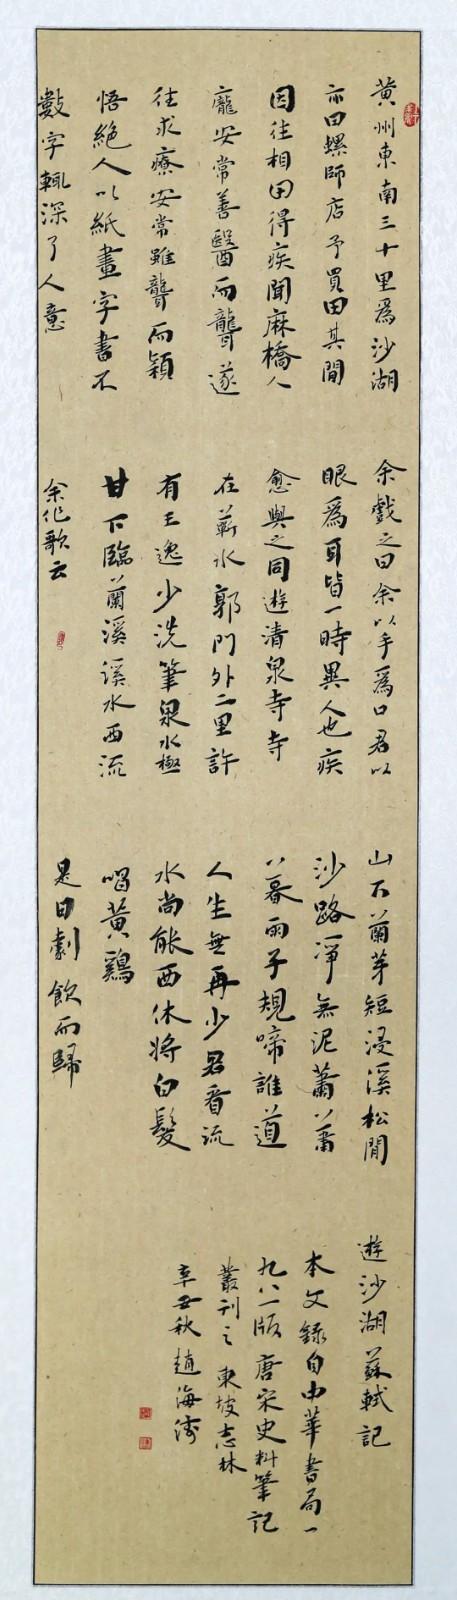 黃州東南三十里爲沙湖
亦曰螺師店予買田其閒
因往相田得疾聞麻橋人
龐安常善醫而聾遂
往求療安常雖聾而穎
悟絕人以紙畫字書不
數字輒深了人意
余戲之曰余以手爲口君以
眼爲耳皆一時異人也疾
愈與之同遊清泉寺寺
在蘄水郭門外二里許
有王逸少洗筆泉水極
甘下臨蘭溪溪水西流
余作歌云
山下蘭芽短浸溪松閒
沙路淨無泥蕭蕭
暮雨子規啼誰道
人生無再少君看流
水尚能西休將白髮
唱黃鷄
是日劇飲而歸
遊沙湖蘇軾記
本文錄自中華書局一
九八一版唐宋史料筆記
叢刊之東坡志林
辛丑秋趙海濤